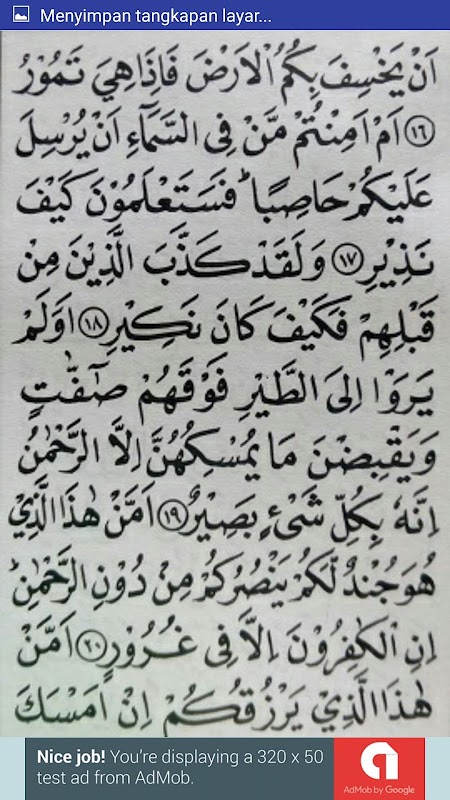 Menyimpan tangkapan layar...
اَنْ يَّخْسِفَ بِكُمُ الْاَرْضَ فَاِذَا هِيَ تَمُوْرُ
﴿١٦﴾ اَمْ اَمِنْتُمْ مَّنْ فِى السَّمَآءِ اَنْ يُّرْسِلَ
عَلَيْكُمْ حَاصِبًا ۗ فَسَتَعْلَمُوْنَ كَيْفَ
نَذِيْرِ ﴿١٧﴾ وَلَقَدْ كَذَّبَ الَّذِيْنَ مِنْ
قَبْلِهِمْ فَكَيْفَ كَانَ نَكِيْرِ ﴿١٨﴾ اَوَلَمْ
يَرَوْا اِلَى الطَّيْرِ فَوْقَهُمْ صٰۤفّٰتٍ
وَيَقْبِضْنَ مَا يُمْسِكُهُنَّ اِلَّا الرَّحْمٰنُ
اِنَّهٗ بِكُلِّ شَيْءٍ بَصِيْرٌ ﴿١٩﴾ اَمَّنْ هٰذَا الَّذِيْ
هُوَ جُنْدٌ لَّكُمْ يَنْصُرُكُمْ مِنْ دُوْنِ الرَّحْمٰنِ ۗ
اِنِ الْكٰفِرُوْنَ اِلَّا فِى غُرُوْرٍ ﴿٢٠﴾ اَمَّنْ
هٰذَا الَّذِيْ يَرْزُقُكُمْ اِنْ اَمْسَكَ
Nice job! You're displaying a 320 x 50
test ad from AdMob.
AdMob by Google